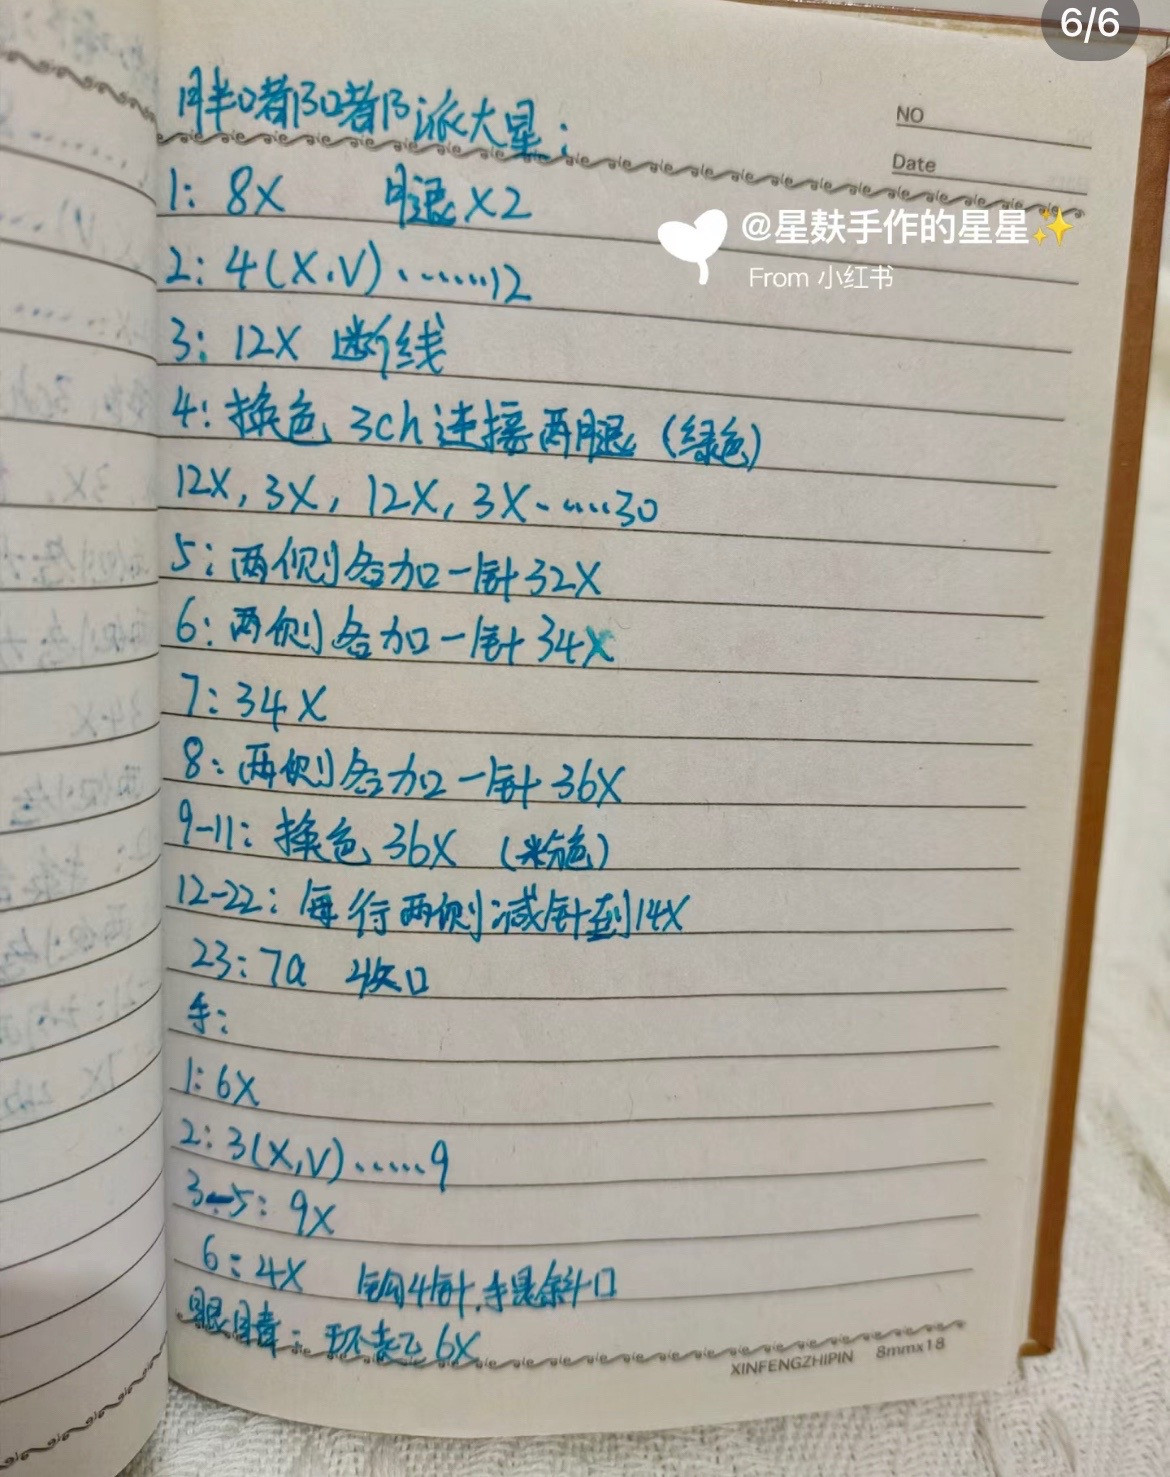 6/6
胖嘟嘟派大星:
NO
Date
1: 8X 腿X2
@星麸手作的星星✨
From 小红书
2: 4(X.V).......12
3: 12X 断线
4: 换色 3ch连接两腿 (绿色)
12X, 3X, 12X, 3X......30
5: 两侧各加一针32X
6: 两侧各加一针34X
7: 34X
8: 两侧各加一针36X
9-11: 换色36X (粉色)
12-22: 每行两侧减针到14X
23: 7a 收口
手:
1: 6X
2: 3(X,V)......9
3-5: 9X
6: 4X 钩4针,手是斜口
眼睛: 环起 6X
XINFENGZHIPIN 8mmx18